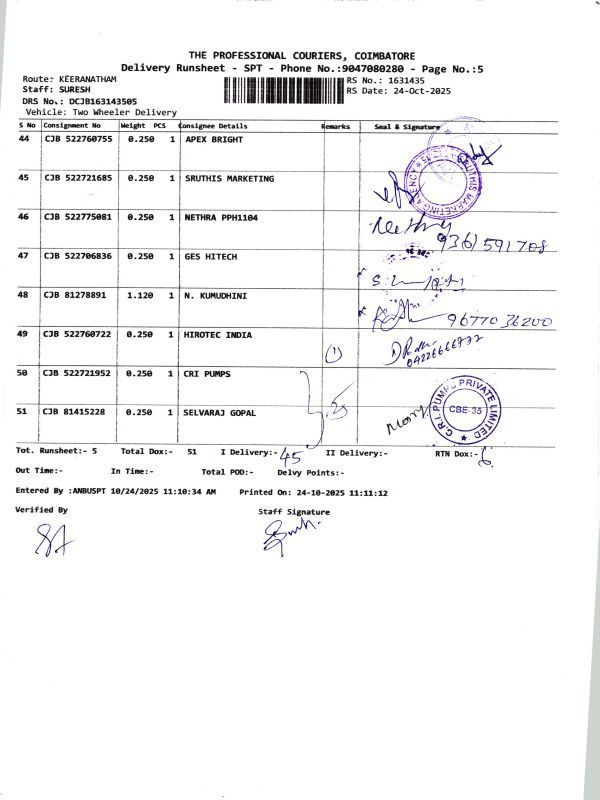 THE PROFESSIONAL COURIERS, COIMBATORE
Delivery Runsheet - SPT - Phone No.:9047080280 - Page No.:5
Route: KEERANATHAM
RS No.: 1631435
Staff: SURESH
RS Date: 24-Oct-2025
DRS No.: DCJB163143505
Vehicle: Two Wheeler Delivery
S No Consignment No Weight PCS Consignee Details Remarks Seal & Signature
44 CJB 522760755 0.250 1 APEX BRIGHT
45 CJB 522721685 0.250 1 SRUTHIS MARKETING
SRUTHIS MARKETING AGENCY
46 CJB 522775081 0.250 1 NETHRA PPH1104
Nethra
9361591708
47 CJB 522706836 0.250 1 GES HITECH
48 CJB 81278891 1.120 1 N. KUMUDHINI
9677036200
49 CJB 522760722 0.250 1 HIROTEC INDIA
(1)
50 CJB 522721952 0.250 1 CRI PUMPS
51 CJB 81415228 0.250 1 SELVARAJ GOPAL
C.R.I. PUMPS PRIVATE LIMITED
CBE-35
Tot. Runsheet:- 5 Total Dox:- 51 I Delivery:- 45 II Delivery:- RTN Dox:- 6
Out Time:- In Time:- Total POD:- Delvy Points:-
Entered By :ANBUSPT 10/24/2025 11:10:34 AM Printed On: 24-10-2025 11:11:12
Verified By Staff Signature